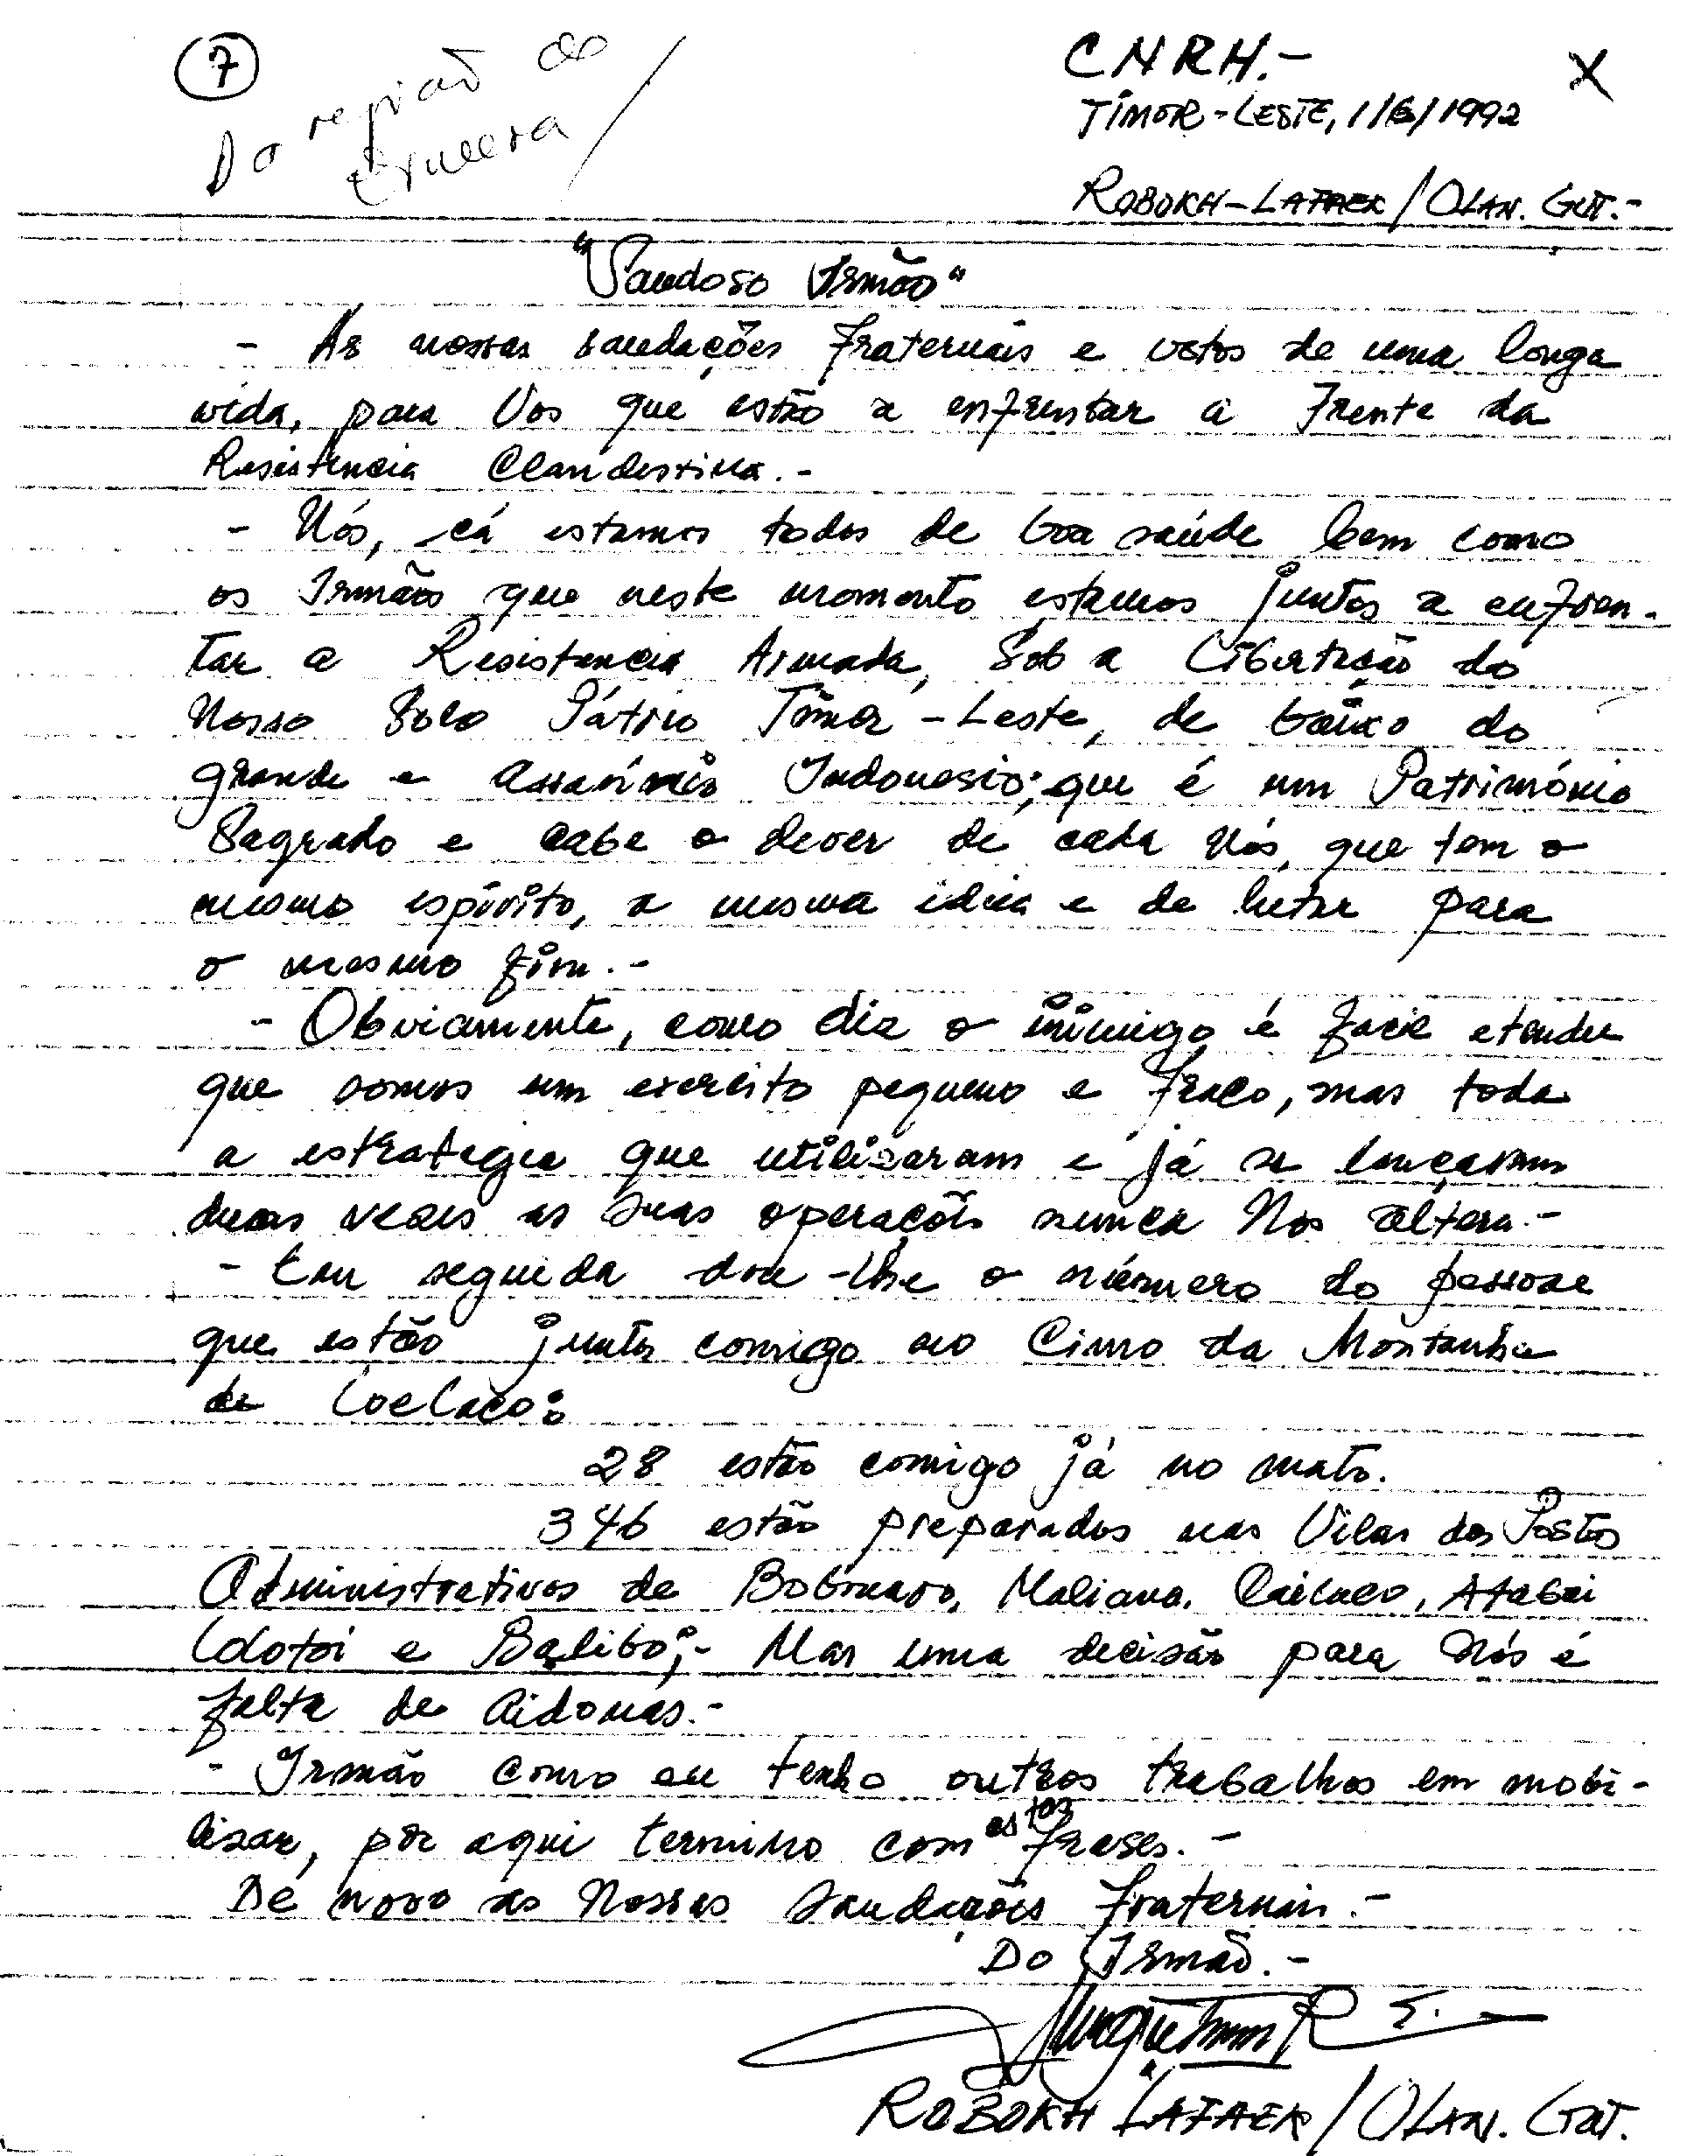 7
Da região de
CNRM.-
X
TIMOR-LESTE, 1/6/1992
ROBOKH-LAFAEK/OLAN. GUT.-
"Saudoso Irmão"
- As nossas saudações fraternais e votos de uma longa
vida, para Vos que estão a enfrentar a Frente da
Resistencia Clandestina.-
- Nós, cá estamos todos de boa saúde bem como
os Irmãos que neste momento estamos juntos a enfren-
tar a Resistencia Armada, Sob a Libertação do
Nosso Solo Pátrio Timor-Leste, de baixo do
grande e assassinio Indonesio; que é um Património
Sagrado e cabe o dever de cada Nós, que tem o
mesmo espírito, a mesma ideia e de lutar para
o mesmo fim.-
- Obviamente, como diz o inimigo é facil etender
que somos um exercito pequeno e fraco, mas toda
a estrategia que utilizaram e já se lançaram
duas vezes as suas operações nunca Nos altera.-
- Em seguida dou-lhe o número do pessoal
que estão juntos comigo no Cimo da Montanha
de Loelaco:
28 estão comigo já no mato.
346 estão preparados nas Vilas dos Postos
Administrativos de Bobonaro, Maliana, Cailaco, Atabai
Lolotoi e Balibó;- Mas uma decisão para Nós é
falta de
- Irmão como eu tenho outros trabalhos em mobi-
lizar, por aqui termino com estas frases.-
De novo as Nossas Saudações fraternais.-
Do Irmão.-
ROBOKH LAFAEK/OLAN. GUT.